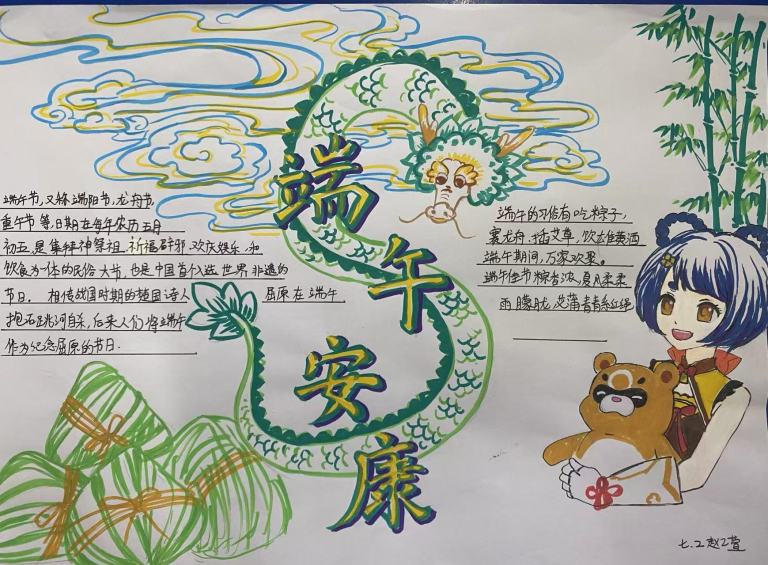 端午安康
端午节,又称端阳节,龙舟节,
重午节等,日期在每年农历五月
初五,是集拜神祭祖,祈福辟邪,欢庆娱乐,和
饮食为一体的民俗大节,也是中国首个入选世界非遗的
节日。相传战国时期的楚国诗人屈原在端午
抱石跳河自杀,后来人们将端午
作为纪念屈原的节日.
端午的习俗有吃粽子,
赛龙舟,插艾草,饮雄黄酒
端午期间,万家欢聚。
端午佳节粽香浓,夏风柔柔
雨朦胧,艾蒲青青系红绳
七.2赵